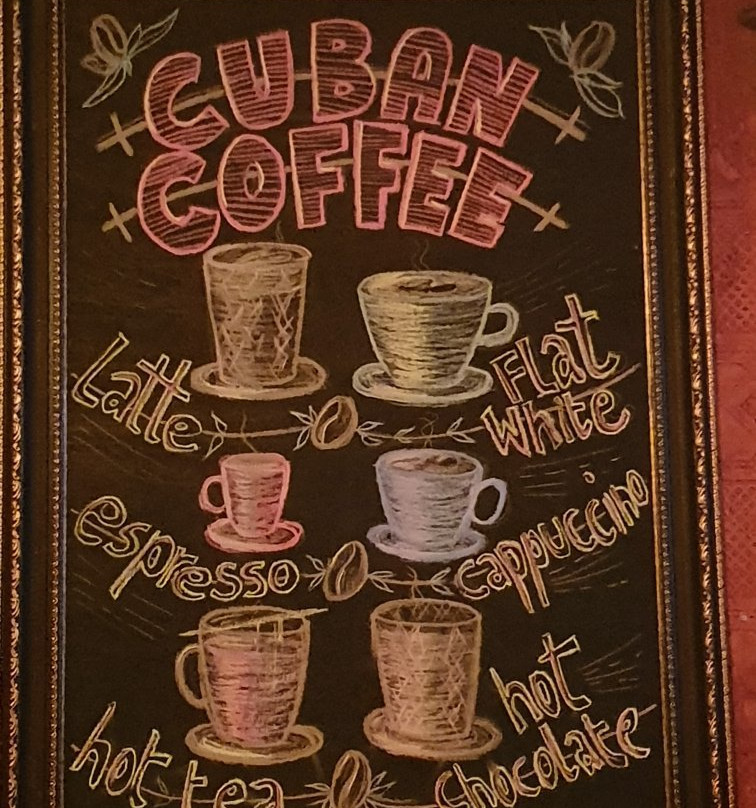 CUBAN
COFFEE
Latte
Flat
White
espresso
cappuccino
hot tea
hot
chocolate